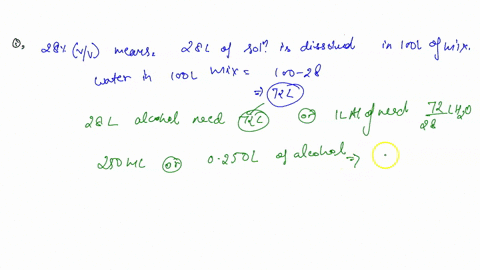 28% (v/v) means. 28L of sol? is dissolved in 100L of mix.
water in 100L mix = 100-28
⇒ 72L
28L alcohol need 72L or 1L Al of need 72/28 L H2O
250 mL or 0.250L of alcohol ⇒